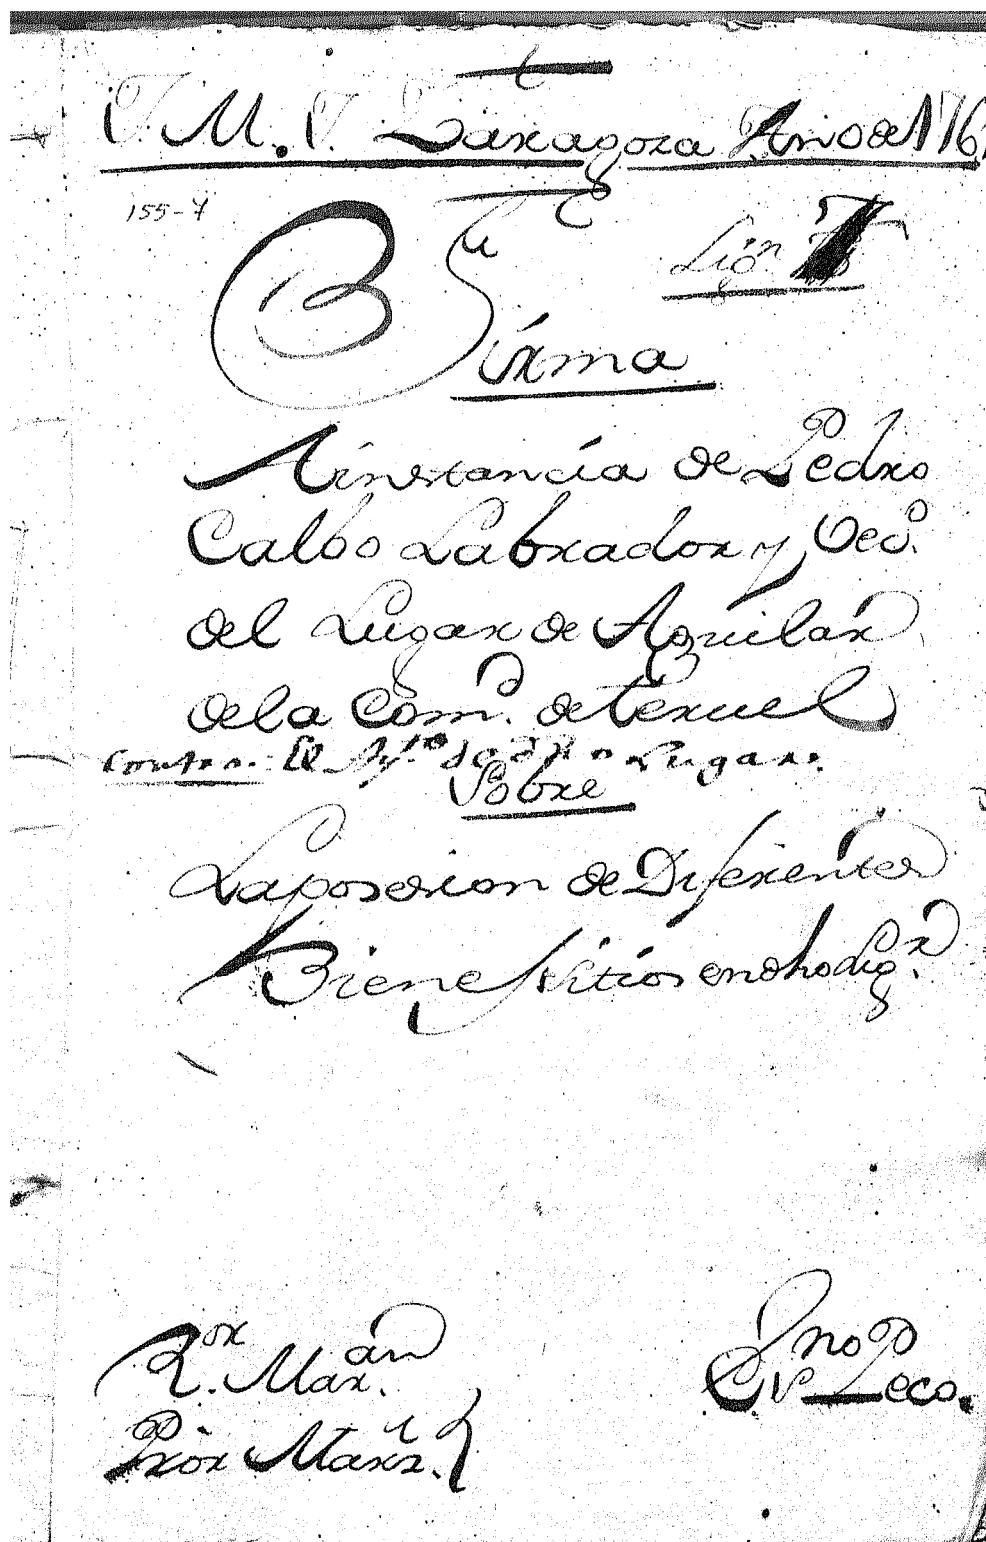 J. M. J. Zaragoza Año de 176
155-7
Lig.n
B
Firma
A instancia de Pedro
Calbo Labrador y Vec.o
del Lugar de Aguilar
de la Com.d de Teruel
Contra. El Ay.to de dho Lugar.
Sobre
La posesion de Diferentes
Bienes sitios en dho Lug.r
R.or Mar.an
Prior Mart.z
Ono